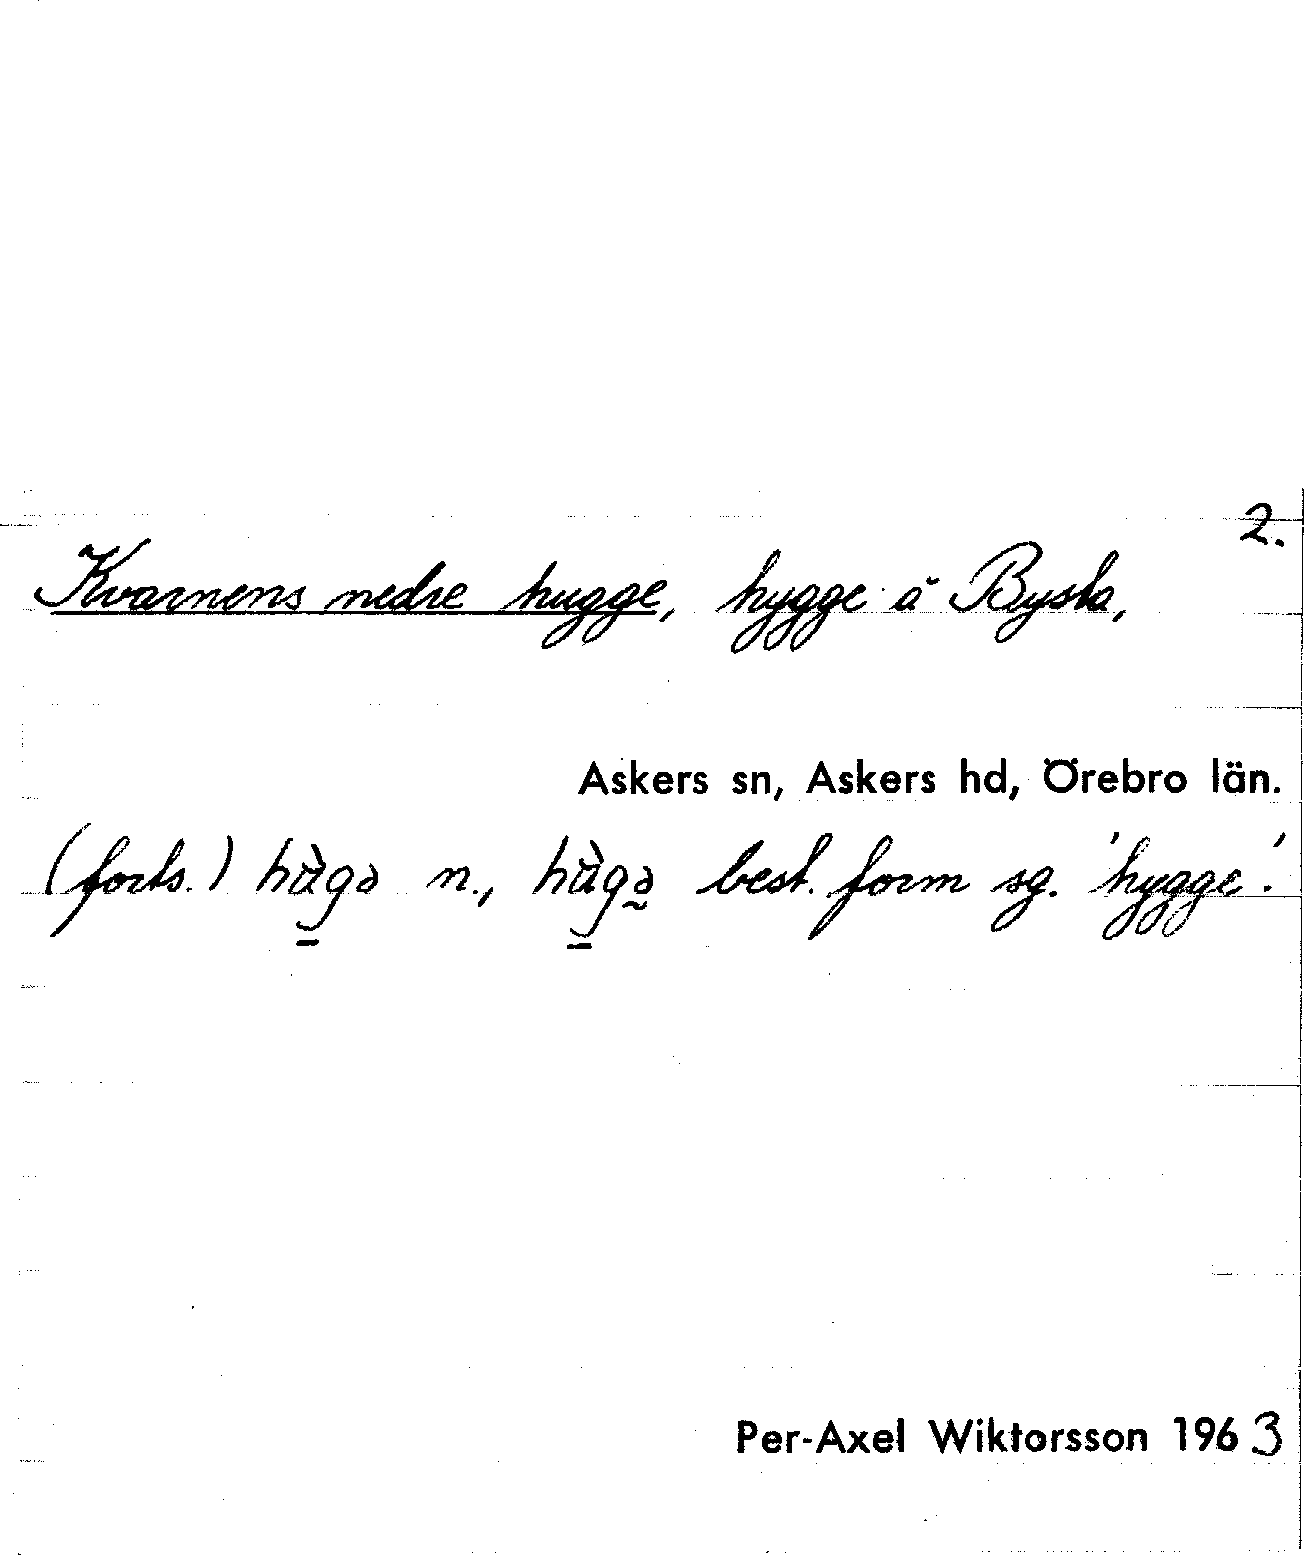 2.
Kvarnens nedre hugge, hygge å Bysta,
Askers sn, Askers hd, Örebro län.
(forts.) hùgə n., hùgə̰ best. form sg. 'hygge'.
Per-Axel Wiktorsson 1963